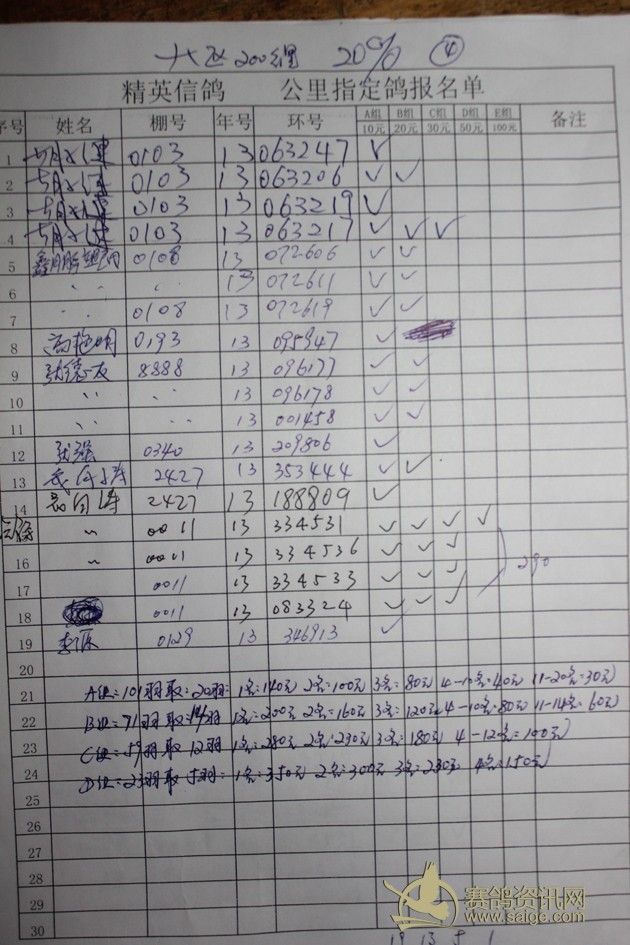 大区200组 20% ④
精英信鸽 公里指定鸽报名单
序号 姓名 棚号 年号 环号 A组 B组 C组 D组 E组 备注
10元 20元 30元 50元 100元
1 0103 13 063247 ✓
2 0103 13 063206 ✓ ✓
3 0103 13 063219 ✓
4 0103 13 063217 ✓ ✓ ✓
5 0108 13 072606 ✓ ✓
6 〃 〃 13 072611 ✓ ✓
7 〃 0108 13 072619 ✓ ✓
8 高艳明 0193 13 095947 ✓
9 张德友 8888 13 096177 ✓ ✓
10 〃 〃 13 096178 ✓ ✓
11 〃 〃 13 001458 ✓ ✓
12 张强 0340 13 209806 ✓
13 2427 13 353444 ✓ ✓
14 2427 13 188809 ✓
〃 0011 13 334531 ✓ ✓ ✓ ✓
16 〃 0011 13 334536 ✓ ✓ ✓
290
17 0011 13 334533 ✓ ✓ ✓
18 0011 13 083324 ✓ ✓ ✓
19 0129 13 346913 ✓
20
21 A组:101羽取:20羽: 1名:140元 2名:100元 3名:80元 4-10名:40元 11-20名:30元)
22 B组:71羽取:14羽 1名:200元 2名:160元 3名:120元 4-10名:80元 11-14名:60元)
23 C组:59羽取 12羽 1名:280元 2名:230元 3名:180元 4-12名:100元)
24 D组:23羽取 5羽: 1名:350元 2名:300元 3名:230元 4名:150元
25
26
27
28
29
30
赛鸽资讯网
www.saige.com